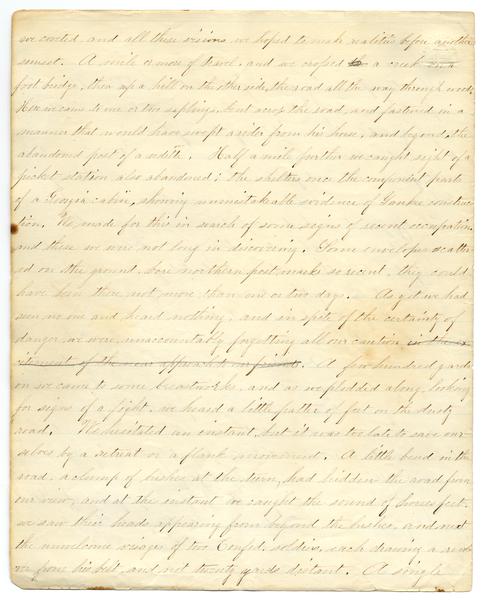 we coveted and all these visions we hoped to make realities before another
sunset. A mile or more of travel, and we crossed to a creek on a
foot bridge, then up a hill on the other side, the road all the way through woods.
Here we came to one or two saplings, bent across the road, and fastened in a
manner that would have swept a rider from his horse, and beyond, the
abandoned post of a vidette. Half a mile further we caught sight of a
picket station also abandoned; the shelters, once the component parts
of a Georgia cabin, showing unmistakeable evidence of Yankee construc-
tion. We made for this in search of some signs of recent occupation
and these we were not long in discovering. Some envelopes scatter-
ed on the ground, bore northern post marks so recent, they could
have been there not more than one or two days. As yet we had
seen no one and heard nothing, and in spite of the certainty of
danger we were, unaccountably forgetting all our caution in the ex-
citement of the near approach to our friends. A few hundred yards
on we came to some breastworks, and as we plodded along, looking
for signs of a fight, we heard a little patter of feet on the dusty
road. We hesitated an instant, but it was too late to save our-
selves by a retreat or a flank movement. A little bend in the
road, a clump of bushes at the turn, had hidden the road from
our view, and at the instant we caught the sound of horses feet,
we saw their heads appearing from beyond the bushes, and next
the unwelcome visages of two Confed. soldiers, each drawing a revol-
ver from his belt, and not twenty yards distant. A single